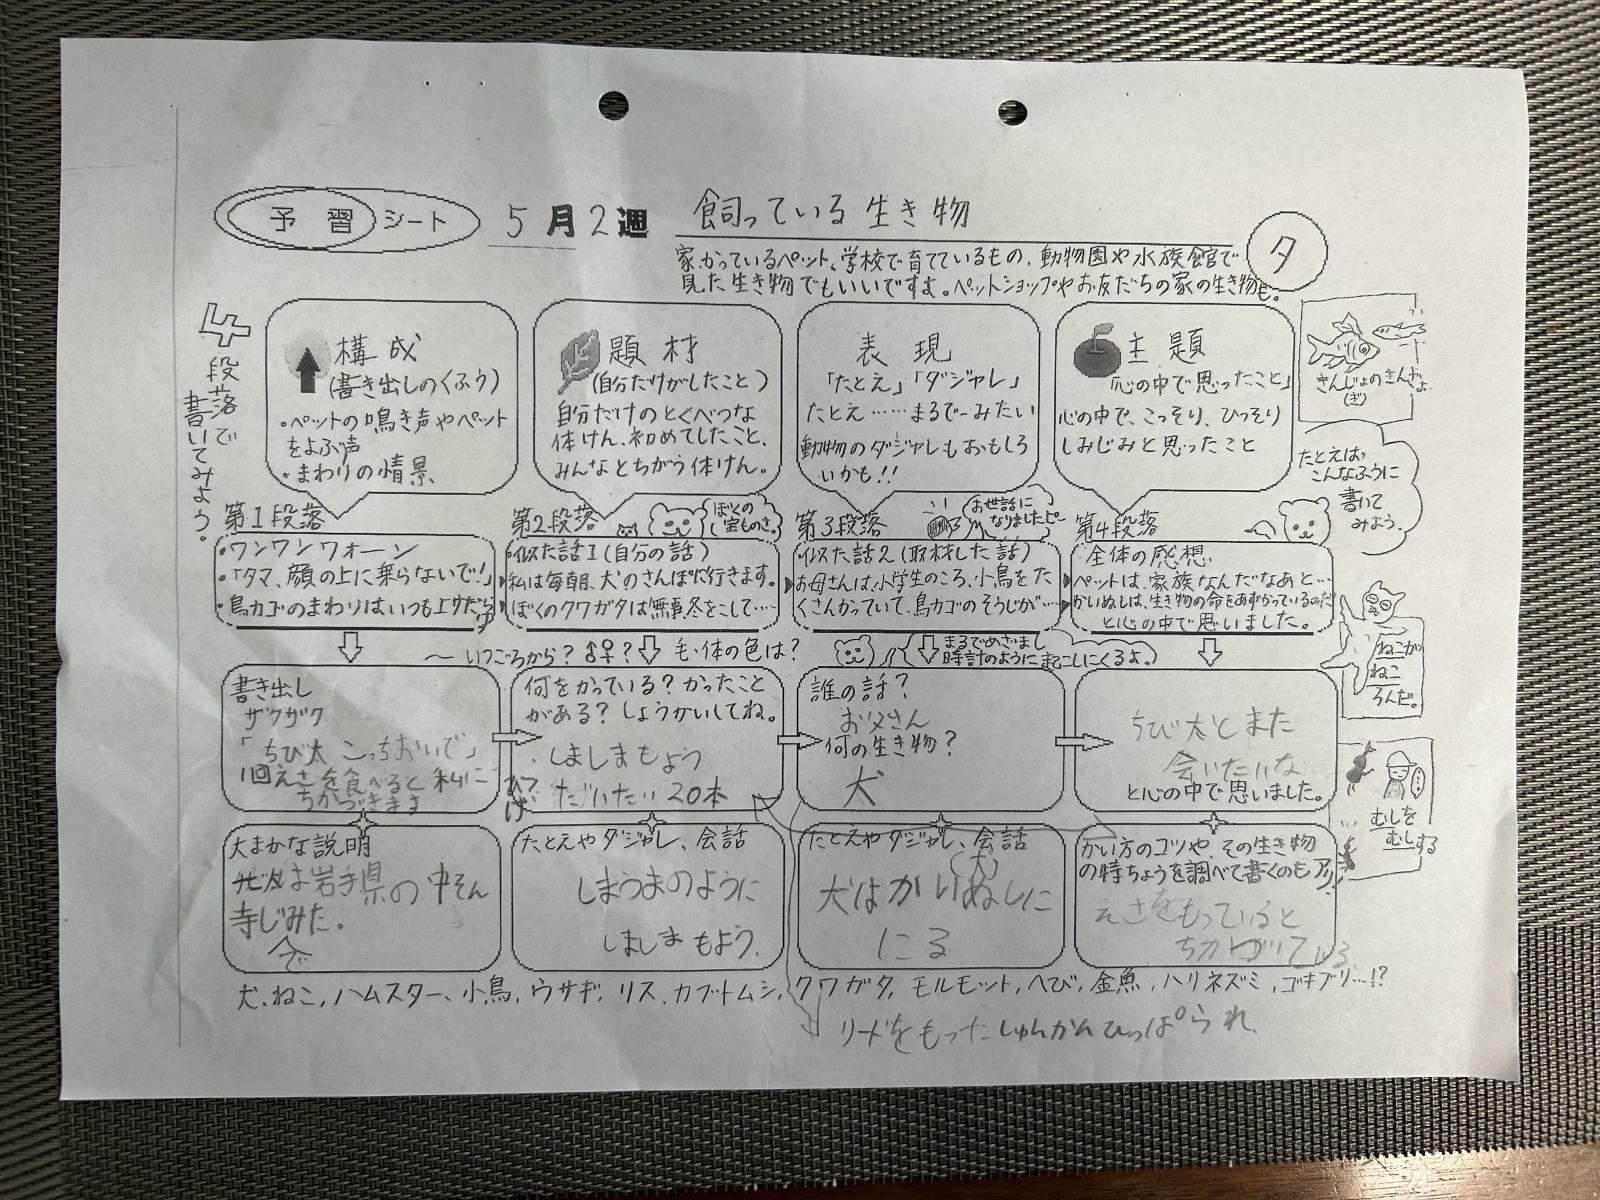 予習シート 5月2週 飼っている生き物
タ
家かっているペット、学校で育てているもの、動物園や水族館で
見た生き物でもいいですよ。ペットショップやお友だちの家の生き物も。
4段落で
書いてみよう。
構成
(書き出しのくふう)
・ペットの鳴き声やペット
をよぶ声
・まわりの情景
題材
(自分だけがしたこと)
自分だけのとくべつな
体けん、初めてしたこと、
みんなとちがう体けん。
表現
「たとえ」「ダジャレ」
たとえ……まるで〜みたい
動物のダジャレもおもしろ
いかも!!
主題
「心の中で思ったこと」
心の中で、こっそり、ひっそり
しみじみと思ったこと
きんじょのきんぎょ
(ぎ)
たとえば
こんなふうに
書いて
みよう。
第1段落
・ワンワンワォーン
・「タマ、顔の上に乗らないで!」
・鳥カゴのまわりはいつもエサだらけ
第2段落
ぼくの
宝ものさ。
似た話1(自分の話)
私は毎朝、犬のさんぽに行きます。
ぼくのクワガタは無事冬をこして……
第3段落
お世話に
なりましたピー
似た話2(取材した話)
お母さんは小学生のころ、小鳥をた
くさんかっていて、鳥カゴのそうじが……
第4段落
全体の感想
ペットは、家族なんだなあと…
かいぬしは、生き物の命をあずかっているのだ
と心の中で思いました。
〜いつごろから?♂♀? 毛・体の色は?
まるでめざまし
時計のように起こしにくるよ。
ねこが
ねこ
ろんだ。
書き出し
ザクザク
「ちび太 こっちおいで」
1回えさを食べると私に
ちかづきます
何をかっている?かったこと
がある?しょうかいしてね。
・しましまもよう
ひげ だいたい20本
誰の話?
お父さん
何の生き物?
犬
ちび太とまた
会いたいな
と心の中で思いました。
むしを
むしする
大まかな説明
岩手県の中そん
寺じみた。
で
たとえやダジャレ、会話
しまうまのように
しましまもよう。
たとえやダジャレ、会話
犬はかいぬしに
にる
かい方のコツや、その生き物
の特ちょうを調べて書くのもアリ!
えさをもっていると
ちかづいている
犬、ねこ、ハムスター、小鳥、ウサギ、リス、カブトムシ、クワガタ、モルモット、へび、金魚、ハリネズミ、ゴキブリ…!?
リードをもったしゅんかんひっぱられ